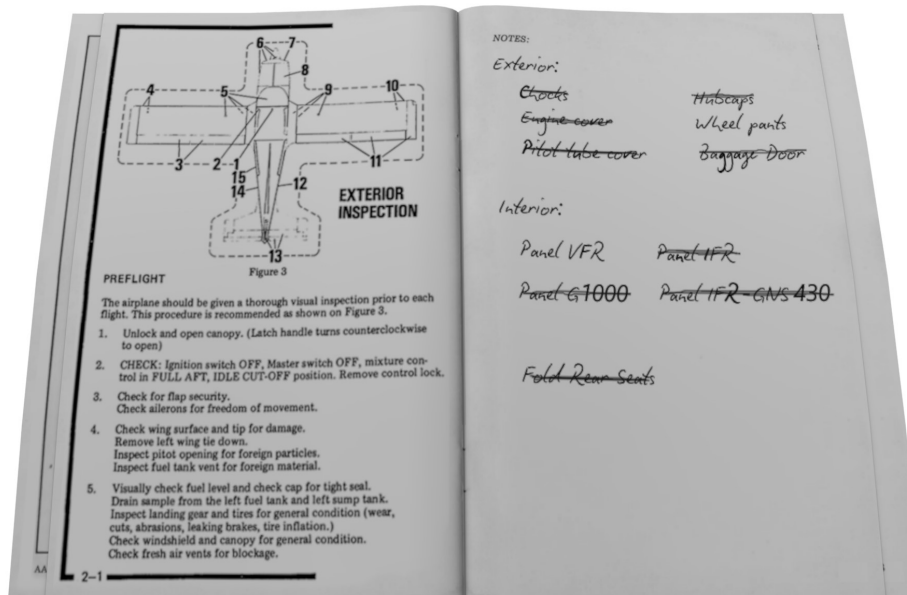 6 7
8
4 5 9 10
3 2 1 11
15
14 12
EXTERIOR
INSPECTION
13
Figure 3
PREFLIGHT
The airplane should be given a thorough visual inspection prior to each
flight. This procedure is recommended as shown on Figure 3.
1. Unlock and open canopy. (Latch handle turns counterclockwise
to open)
2. CHECK: Ignition switch OFF, Master switch OFF, mixture con-
trol in FULL AFT, IDLE CUT-OFF position. Remove control lock.
3. Check for flap security.
Check ailerons for freedom of movement.
4. Check wing surface and tip for damage.
Remove left wing tie down.
Inspect pitot opening for foreign particles.
Inspect fuel tank vent for foreign material.
5. Visually check fuel level and check cap for tight seal.
Drain sample from the left fuel tank and left sump tank.
Inspect landing gear and tires for general condition (wear,
cuts, abrasions, leaking brakes, tire inflation.)
Check windshield and canopy for general condition.
Check fresh air vents for blockage.
AA
2-1
NOTES:
Exterior:
Chocks Hubcaps
Engine cover Wheel pants
Pitot tube cover Baggage Door
Interior:
Panel VFR Panel IFR
Panel G1000 Panel IFR-GNS 430
Fold Rear Seats